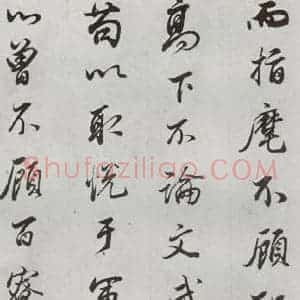 而指麾不顧
高下不論文武
苟以取悦于軍
以曾不顧百寮
Shufaziliao.com